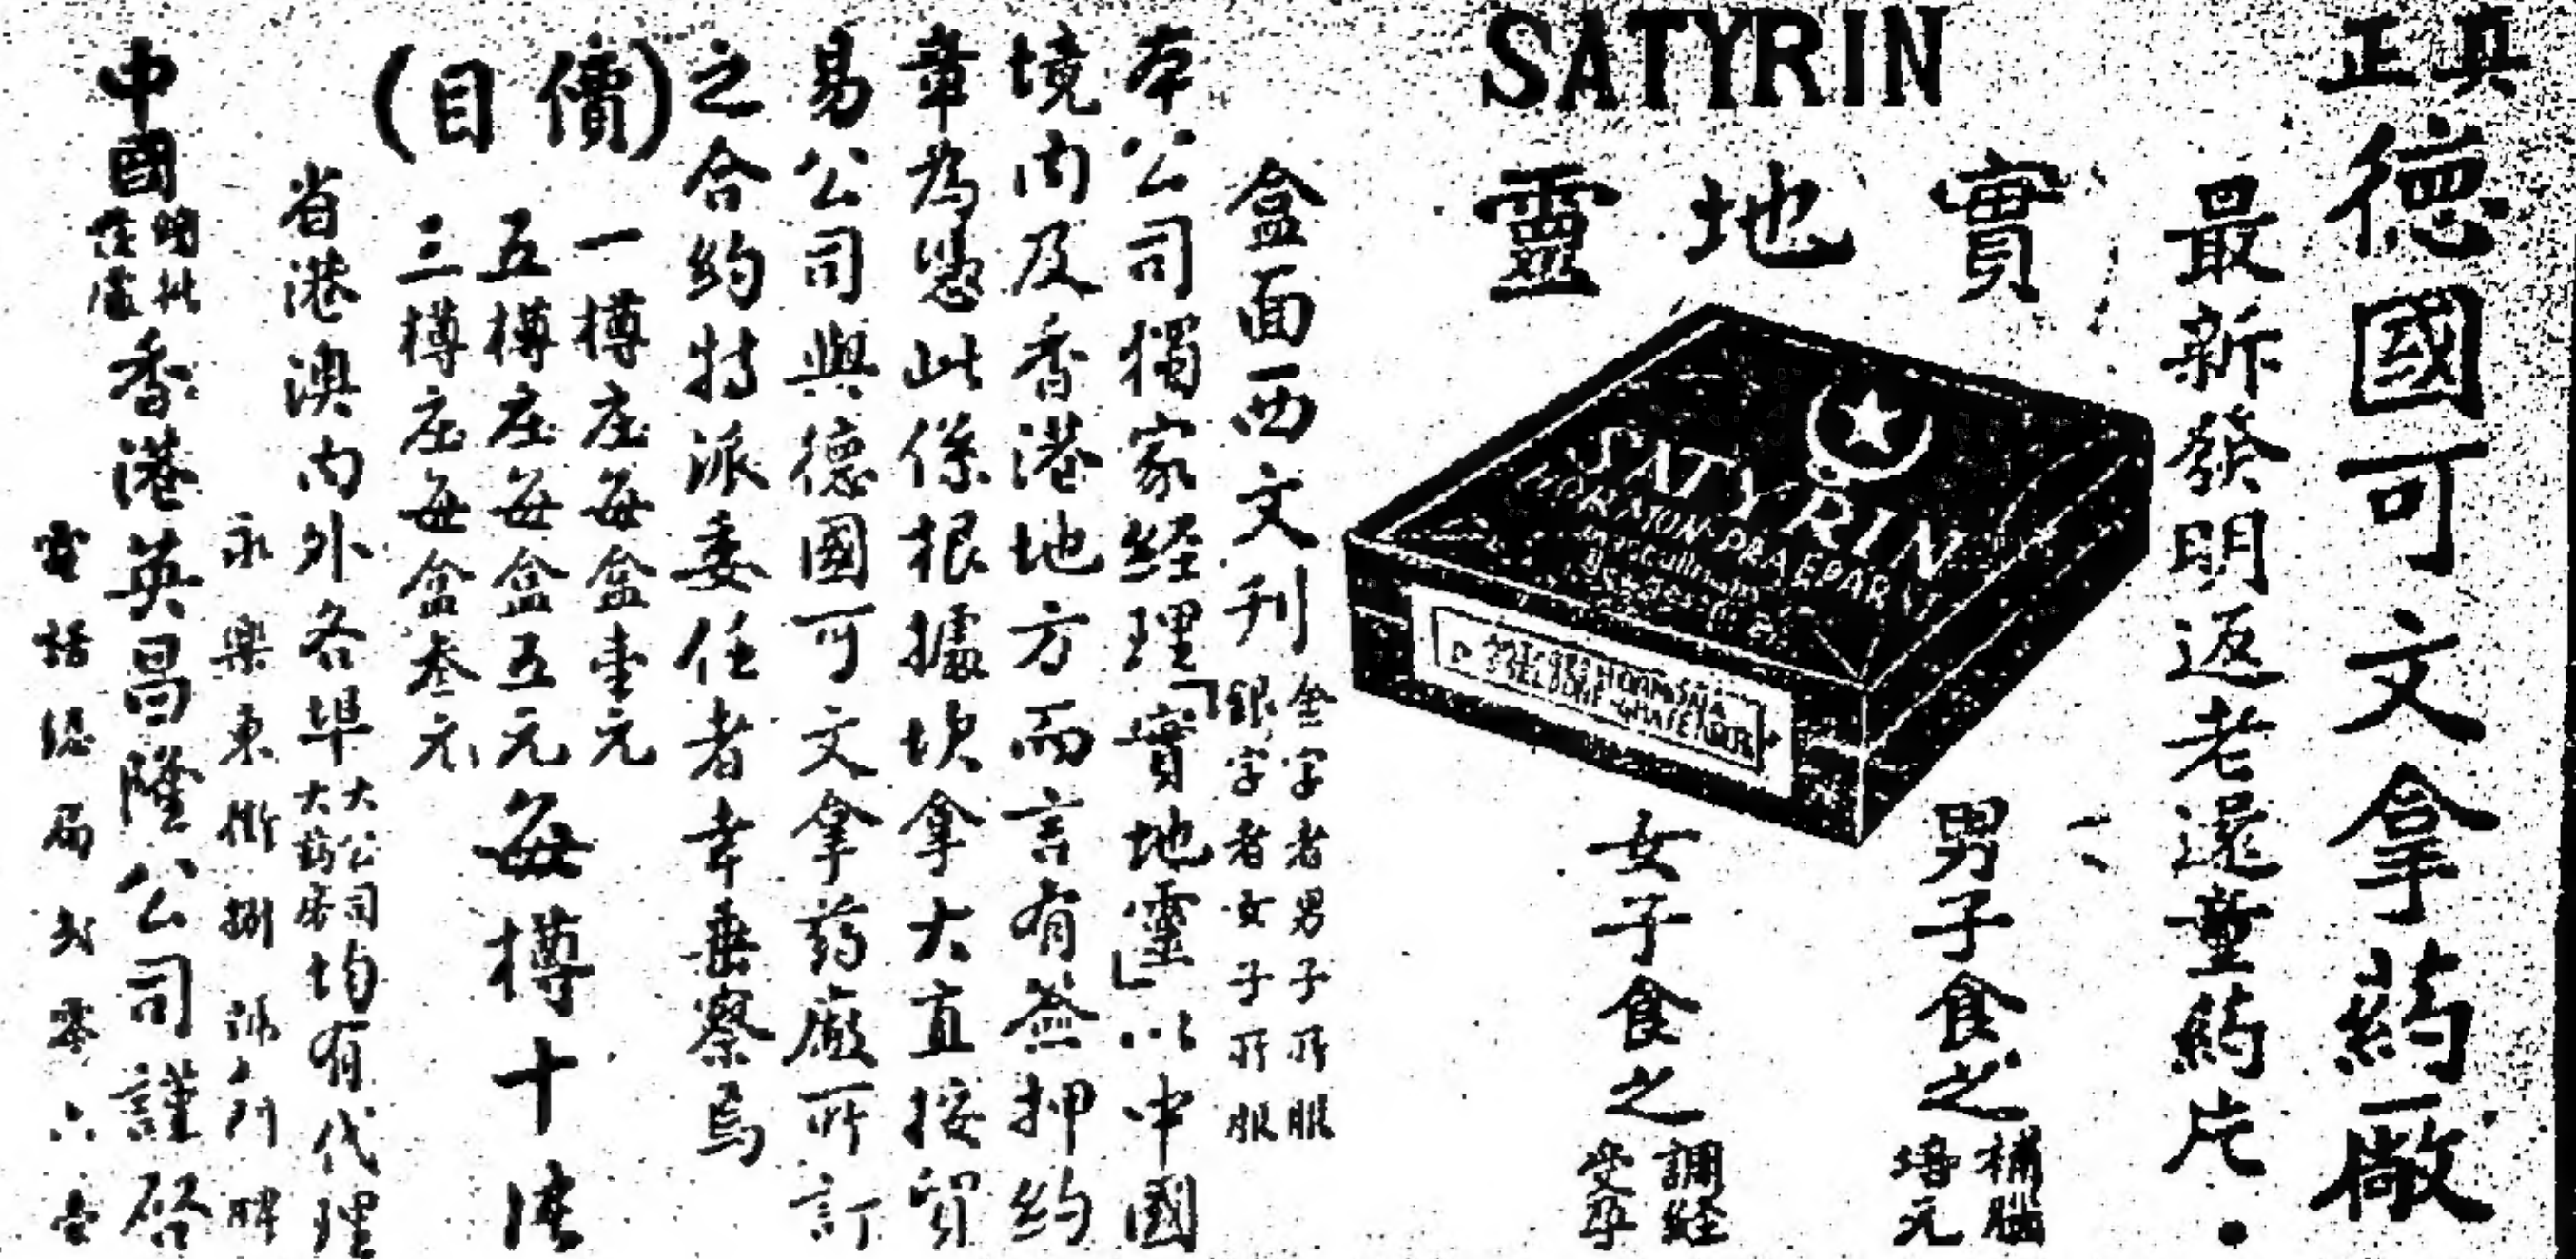 真正
德國可文拿葯廠
最新發明返老還童葯片
SATYRIN
實地靈
SATYRIN
HORMON-PRAEPARAT
男子食之補腦培元
女子食之調經受孕
盒面西文刋金字者男子所服銀字者女子所服
本公司獨家経理「實地靈」以中國
境内及香港地方而言有簽押約
章為慿此係根據坎拿大直接貿
易公司與德國可文拿葯廠所訂
之合約特派委任者幸垂察焉
(價目)
一樽庄每盒壹元
五樽庄每盒五元
三樽庄每盒叁元
每樽十
省港澳内外各埠大公司大葯房均有代理
永樂東街捌號門牌
中國香港英昌隆公司謹啓
電話總局弍零六壹